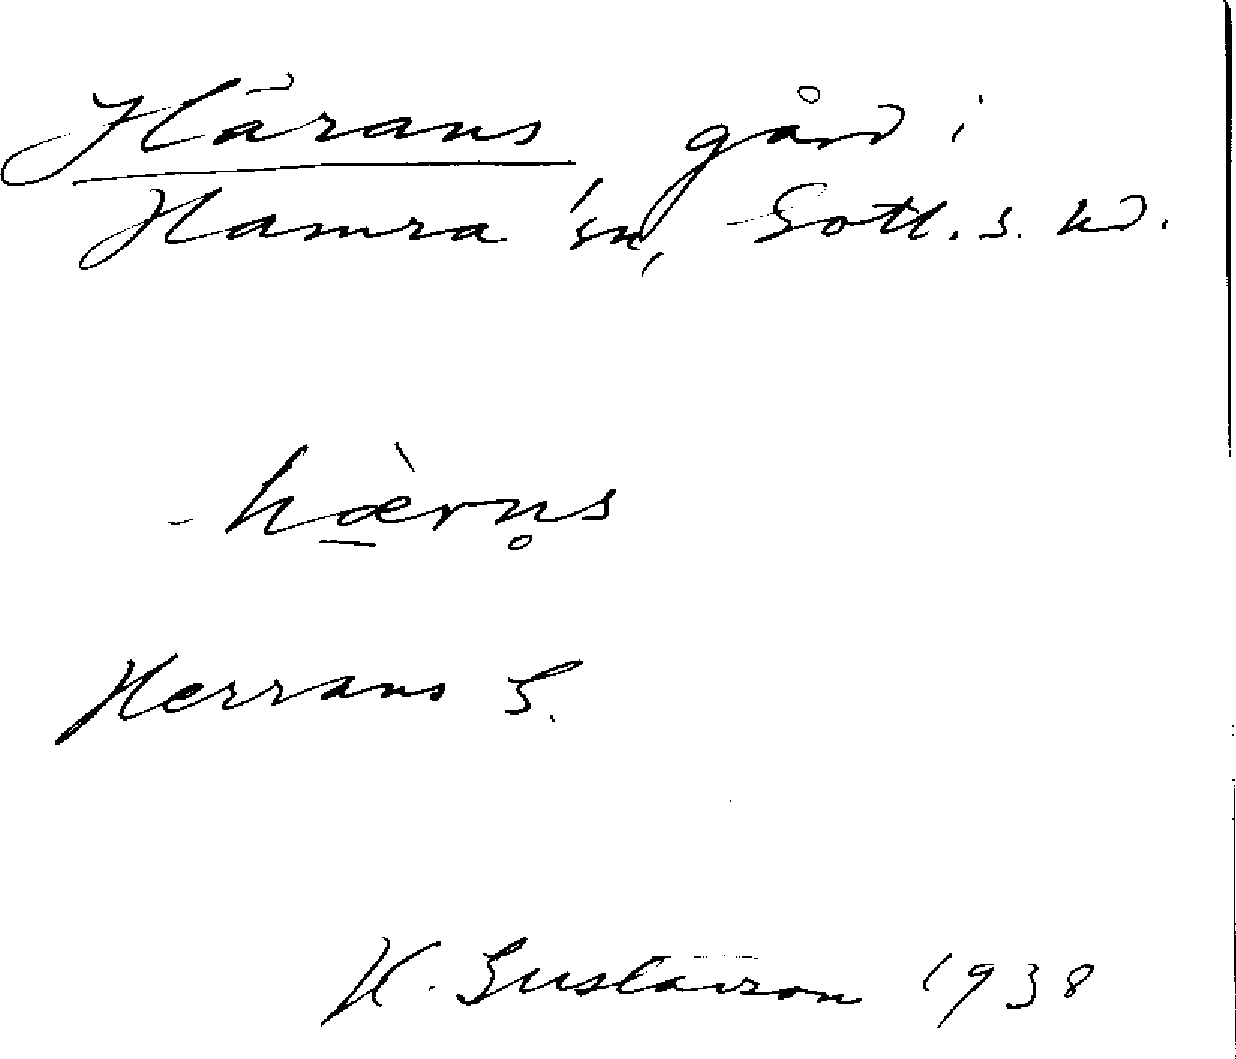 Härans gård i
Hamra sn, Gotl. s. hd.
hæ̱̀rn̥s
Herrans G.
H. Gustavson 1938